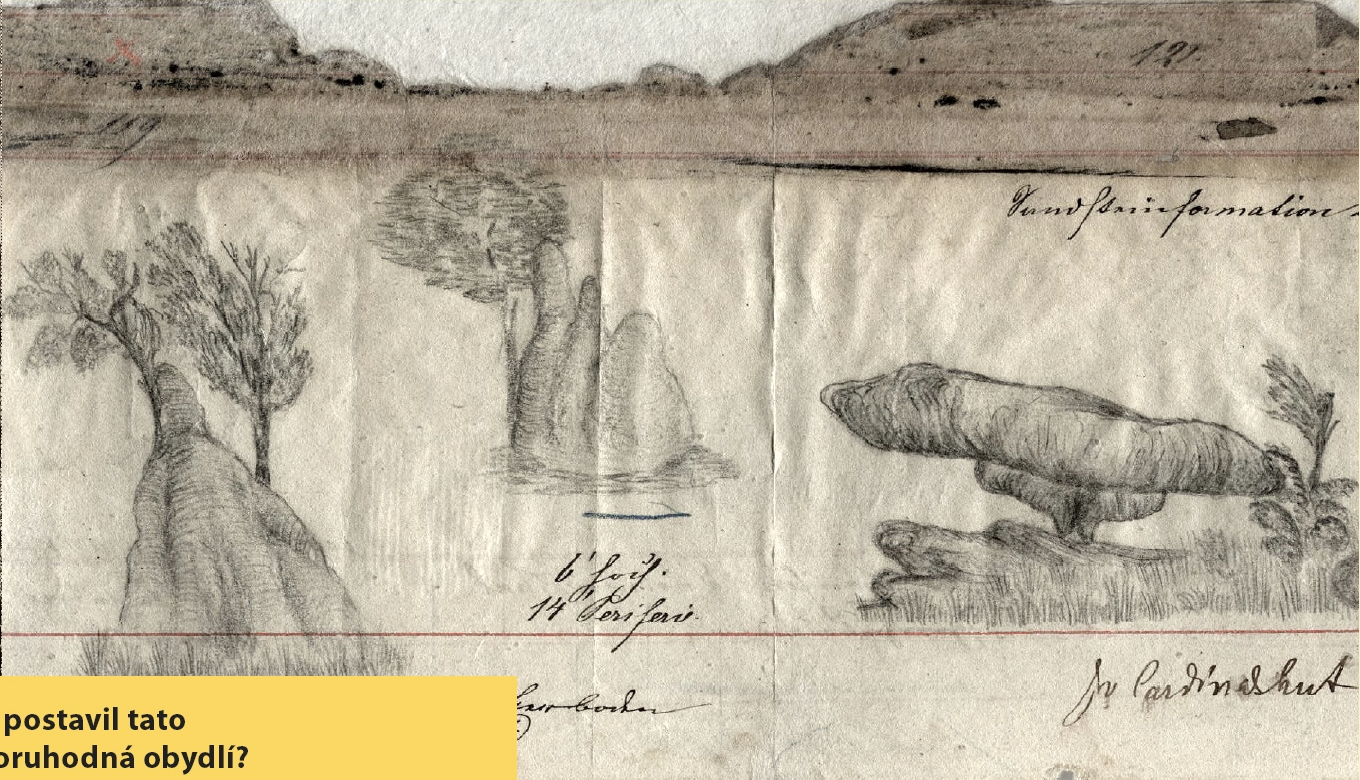 121.
119
Sandsteinformation
6' hoch.
14 Periferie.
Der Cardinalshut
boden
postavil tato
oruhodná obydlí?